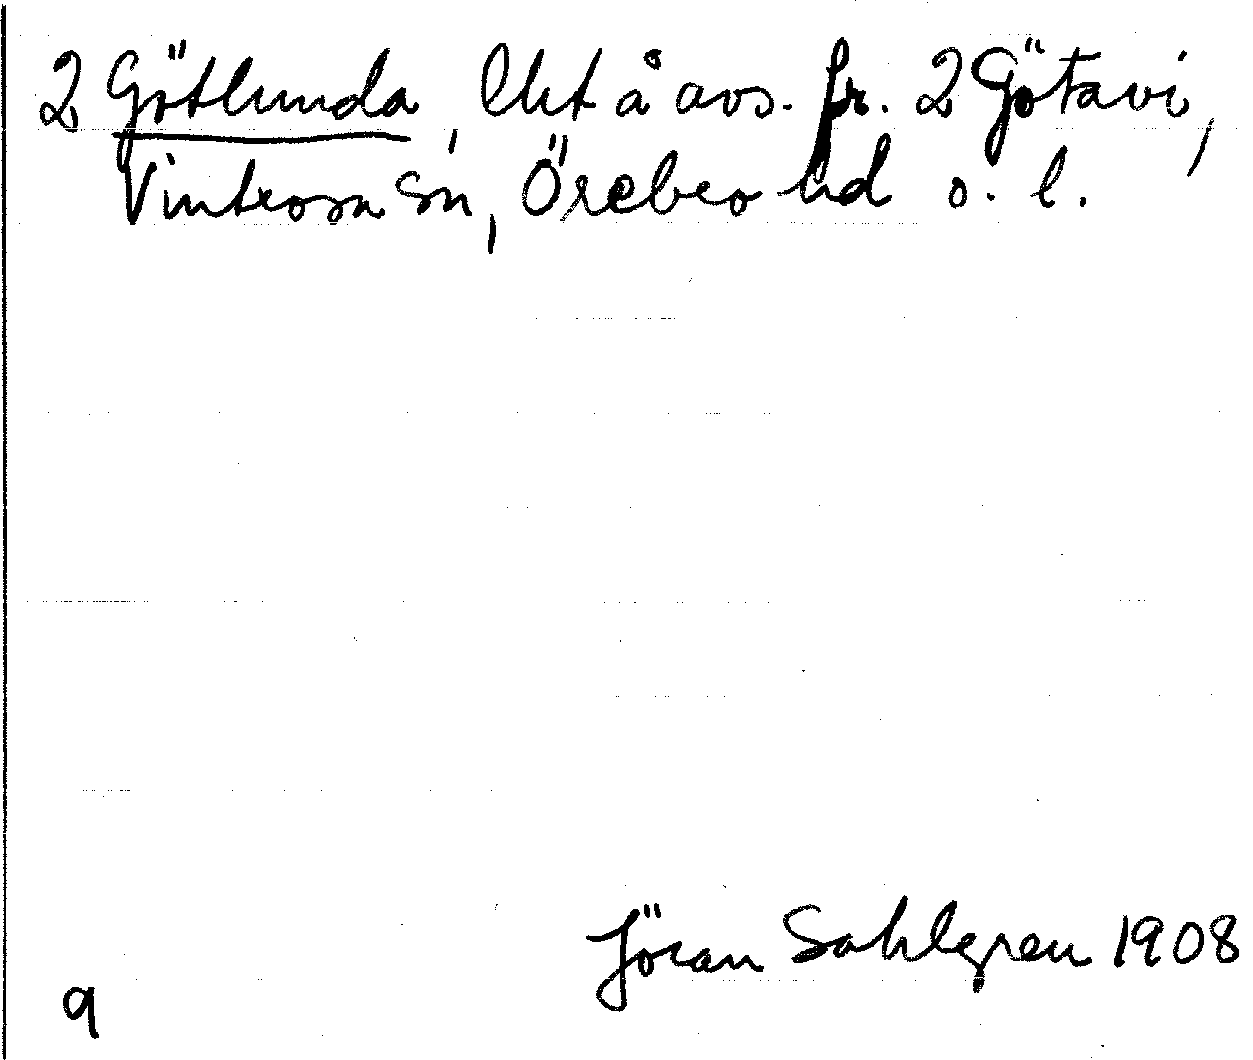 2 Götlunda, lht å avs. fr. 2 Götavi,
Vintrosa sn, Örebro hd o. l.
Jöran Sahlgren 1908
9